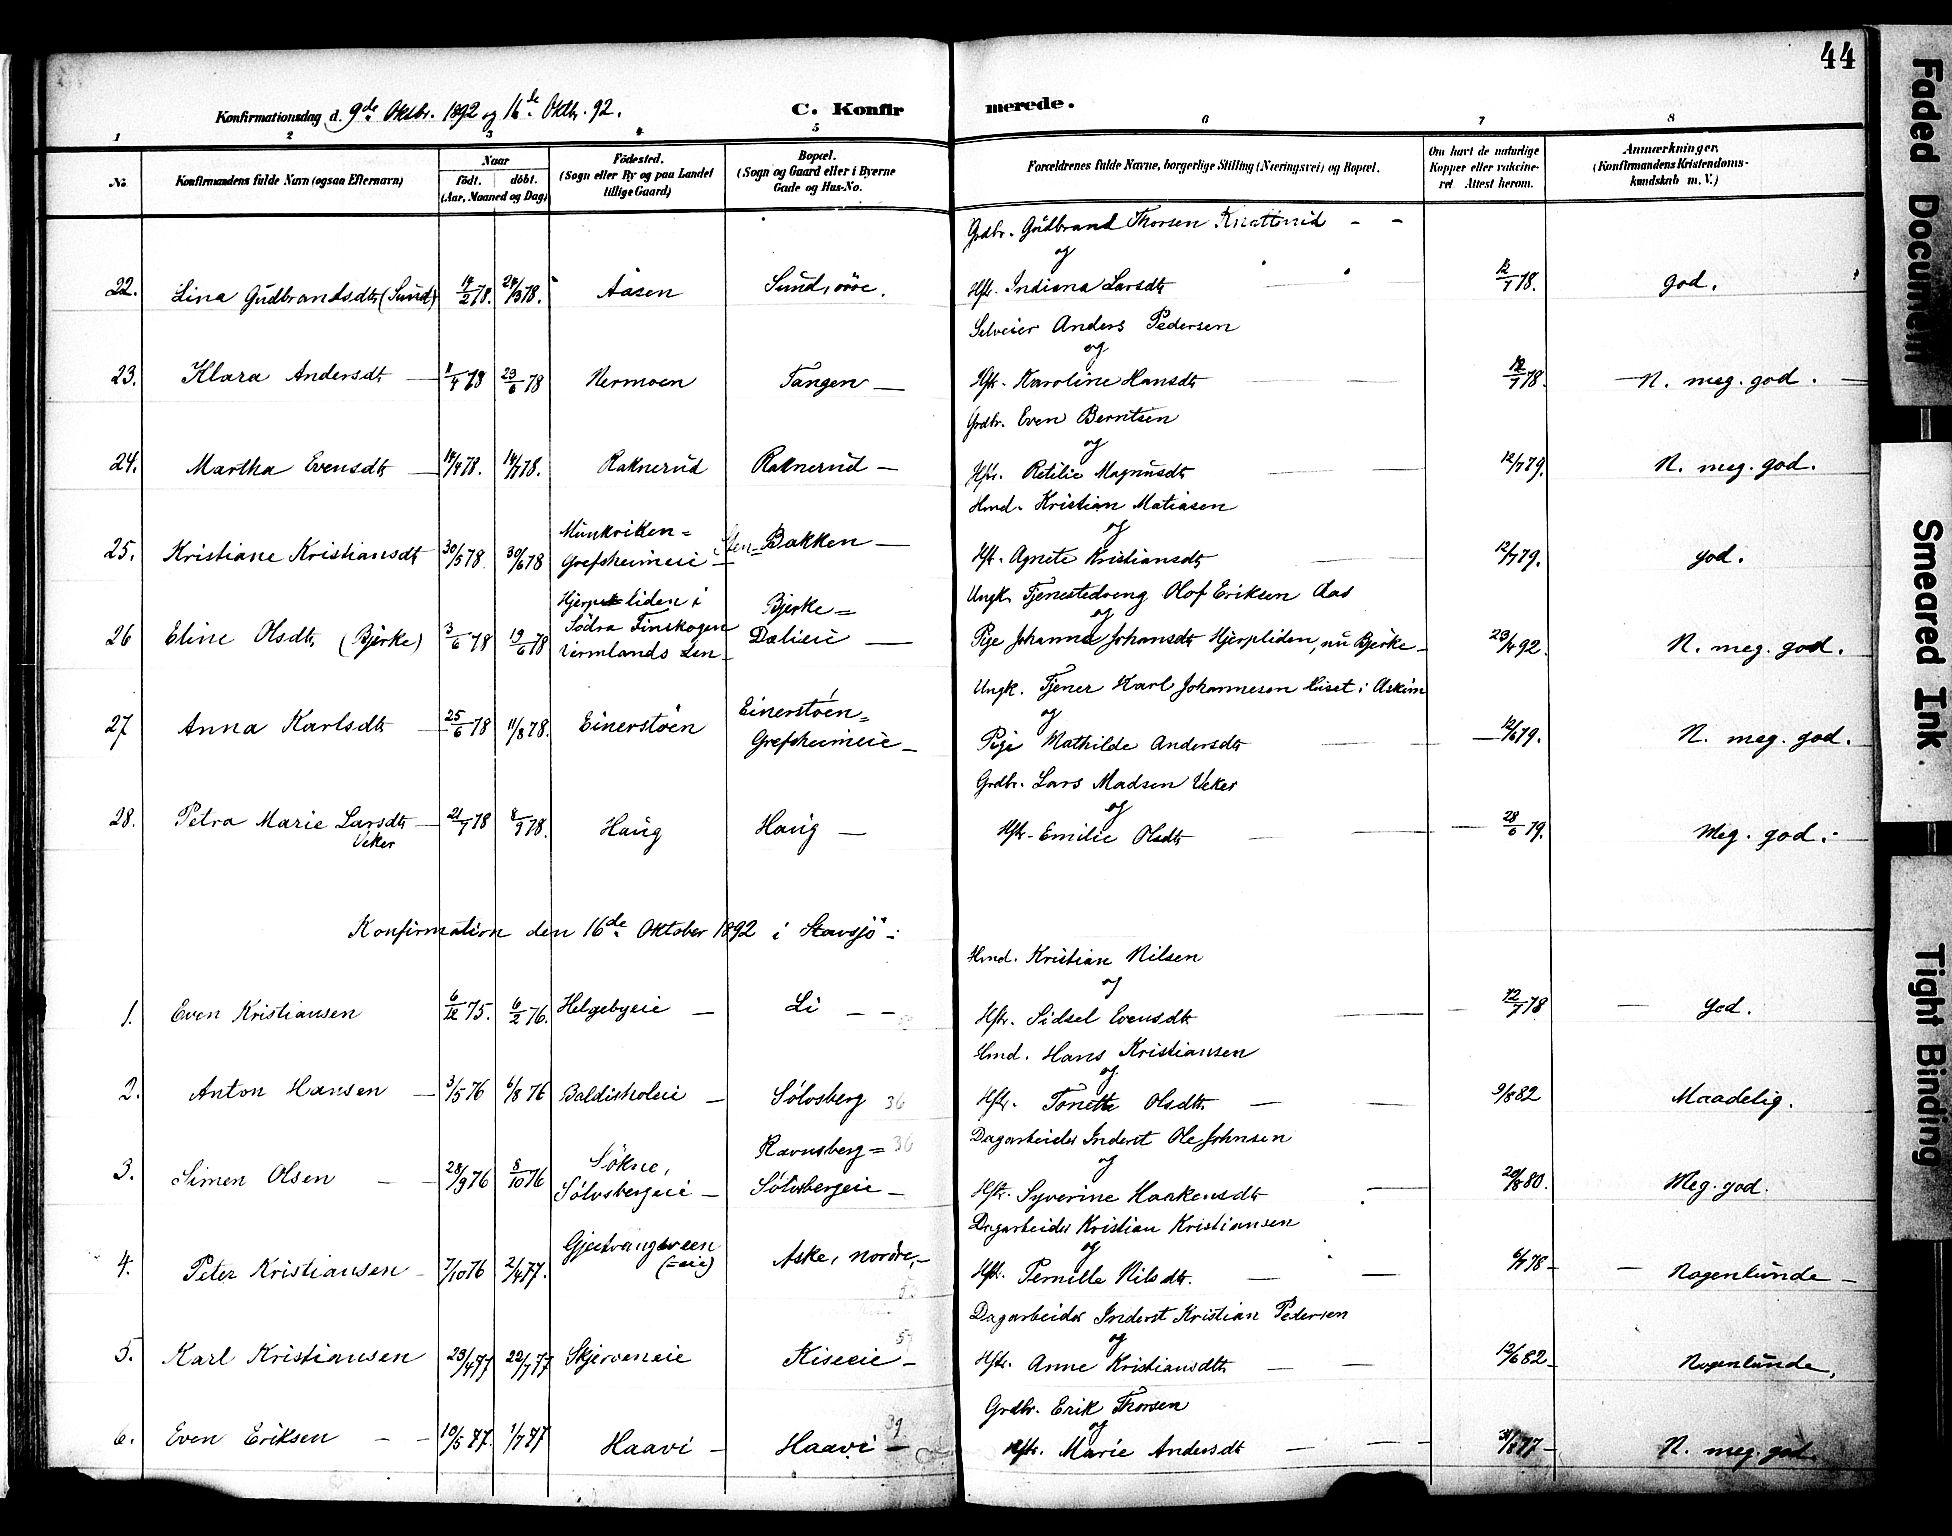 44
Konfirmationsdag d. 9de Oktbr. 1892 og 16de Oktb. 92.
C. Konfirmerede.
1 2 3 4 5 6 7 8
No. Konfirmandens fulde Navn (ogsaa Efternavn) Naar födt. döbt. (Aar, Maaned og Dag) Födested. (Sogn eller By og paa Landet tillige Gaard) Bopæl. (Sogn og Gaard eller i Byerne Gade og Hus-No. Forældrenes fulde Navne, borgerlige Stilling (Næringsvei) og Bopæl. Om havt de naturlige Kopper eller vakcineret. Attest herom. Anmærkninger. (Konfirmandens Kristendomskundskab m. V.)
Grdbr. Gudbrand Thorsen Knatterud
og
22. Lina Gudbrandsdtr (Sund) 14/2 78. 24/3 78. Aasen Sund, övre. Hstr. Indiana Larsdtr 12/7 78. god.
Selveier Anders Pedersen
og
23. Klara Andersdtr 1/4 78 23/6 78 Nermoen Tangen Hstr. Karoline Hansdtr 12/7 78. N. meg. god.
Grdbr. Even Berntsen
og
24. Martha Evensdtr 14/4 78. 14/7 78. Raknerud Raknerud Hstr. Magnusdtr 12/7 79. N. meg. god.
Hmd. Kristian Matiasen
og
25. Kristiane Kristiansdtr 30/5 78. 30/6 78 Munkviken= Grefsheimeie Sten-Bakken Hstr. Agnete Kristiansdtr 12/7 79. god.
Ungk. Tjenestedreng Olof Eriksen Aas
og
26 Eline Olsdtr (Bjerke) 3/6 78 19/6 78 Hjerpeliden i Södra Finskogen Vermlands Len Bjerke= Dælieie Pige Johanna Johansdtr Hjerpliden, nu Bjerke 23/4 92. N. meg. god.
Ungk. Tjener Karl Johannesen Huset i Askim
og
27 Anna Karlsdtr 25/6 78 11/8 78. Einerstöen Einerstöen= Grefsheimeie Pige Mathilde Andersdtr 12/6 79. N. meg. god.
Grdbr. Lars Madsen Veker
og
28. Petra Marie Larsdtr Veker 21/7 78 8/9 78. Haug Haug Hstr. Emilie Olsdtr 28/6 79. Meg. god.
Konfirmation den 16de Oktober 1892 i Stavsjö
Hmd. Kristian Nilsen
og
1. Even Kristiansen 6/12 75. 6/2 76. Helgebyeie Li Hstr. Sidsel Evensdtr 12/7 78 God.
Hmd. Hans Kristiansen
og
2. Anton Hansen 3/5 76 6/8 76 Baldisholeie Sölvsberg 36 Hstr. Tonette Olsdtr 9/8 82 Maadelig.
Dagarbeider Inderst Ole Johnsen
og
3. Simen Olsen 28/9 76 8/10 76 Sökne, Sölvsbergeie Ravnsberg= 36 Sölvsbergeie Hstr. Syverine Haakensdtr 20/8 80. Meg. god.
Dagarbeider Kristian Kristiansen
og
4. Peter Kristiansen 7/10 76 2/4 77. Gjestvang (=eie) Aske, nordre, Hstr. Pernille Nilsdtr. 6/7 78 Nogenlunde
Dagarbeider Inderst Kristian Pedersen
og
5. Karl Kristiansen 23/4 77 22/7 77 Skjerveneie Kiseeie Hstr. Anne Kristiansdtr 12/6 82 Nogenlunde.
Grdbr. Erik Thorsen
og
6. Even Eriksen 10/5 77. 1/7 77 Haavi Haavi 39 Hstr. Marie Andersdtr N. meg. god.
Faded Document
Smeared Ink.
Tight Binding